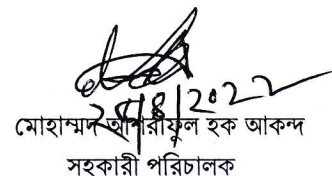 ২৫/৪/২০২২
মোহাম্মদ আশরাফুল হক আকন্দ
সহকারী পরিচালক